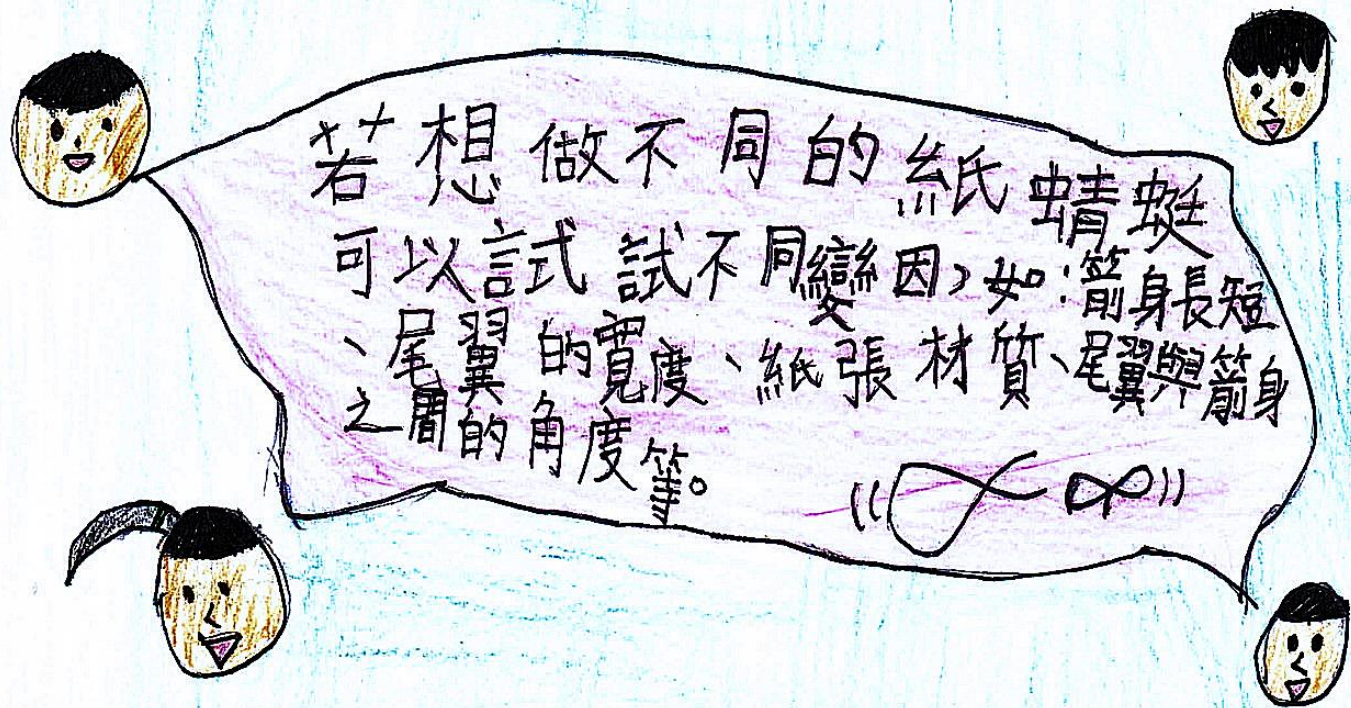 若想做不同的紙蜻蜓
可以試試不同變因,如:箭身長短
、尾翼的寬度、紙張材質、尾翼與箭身
之間的角度等。